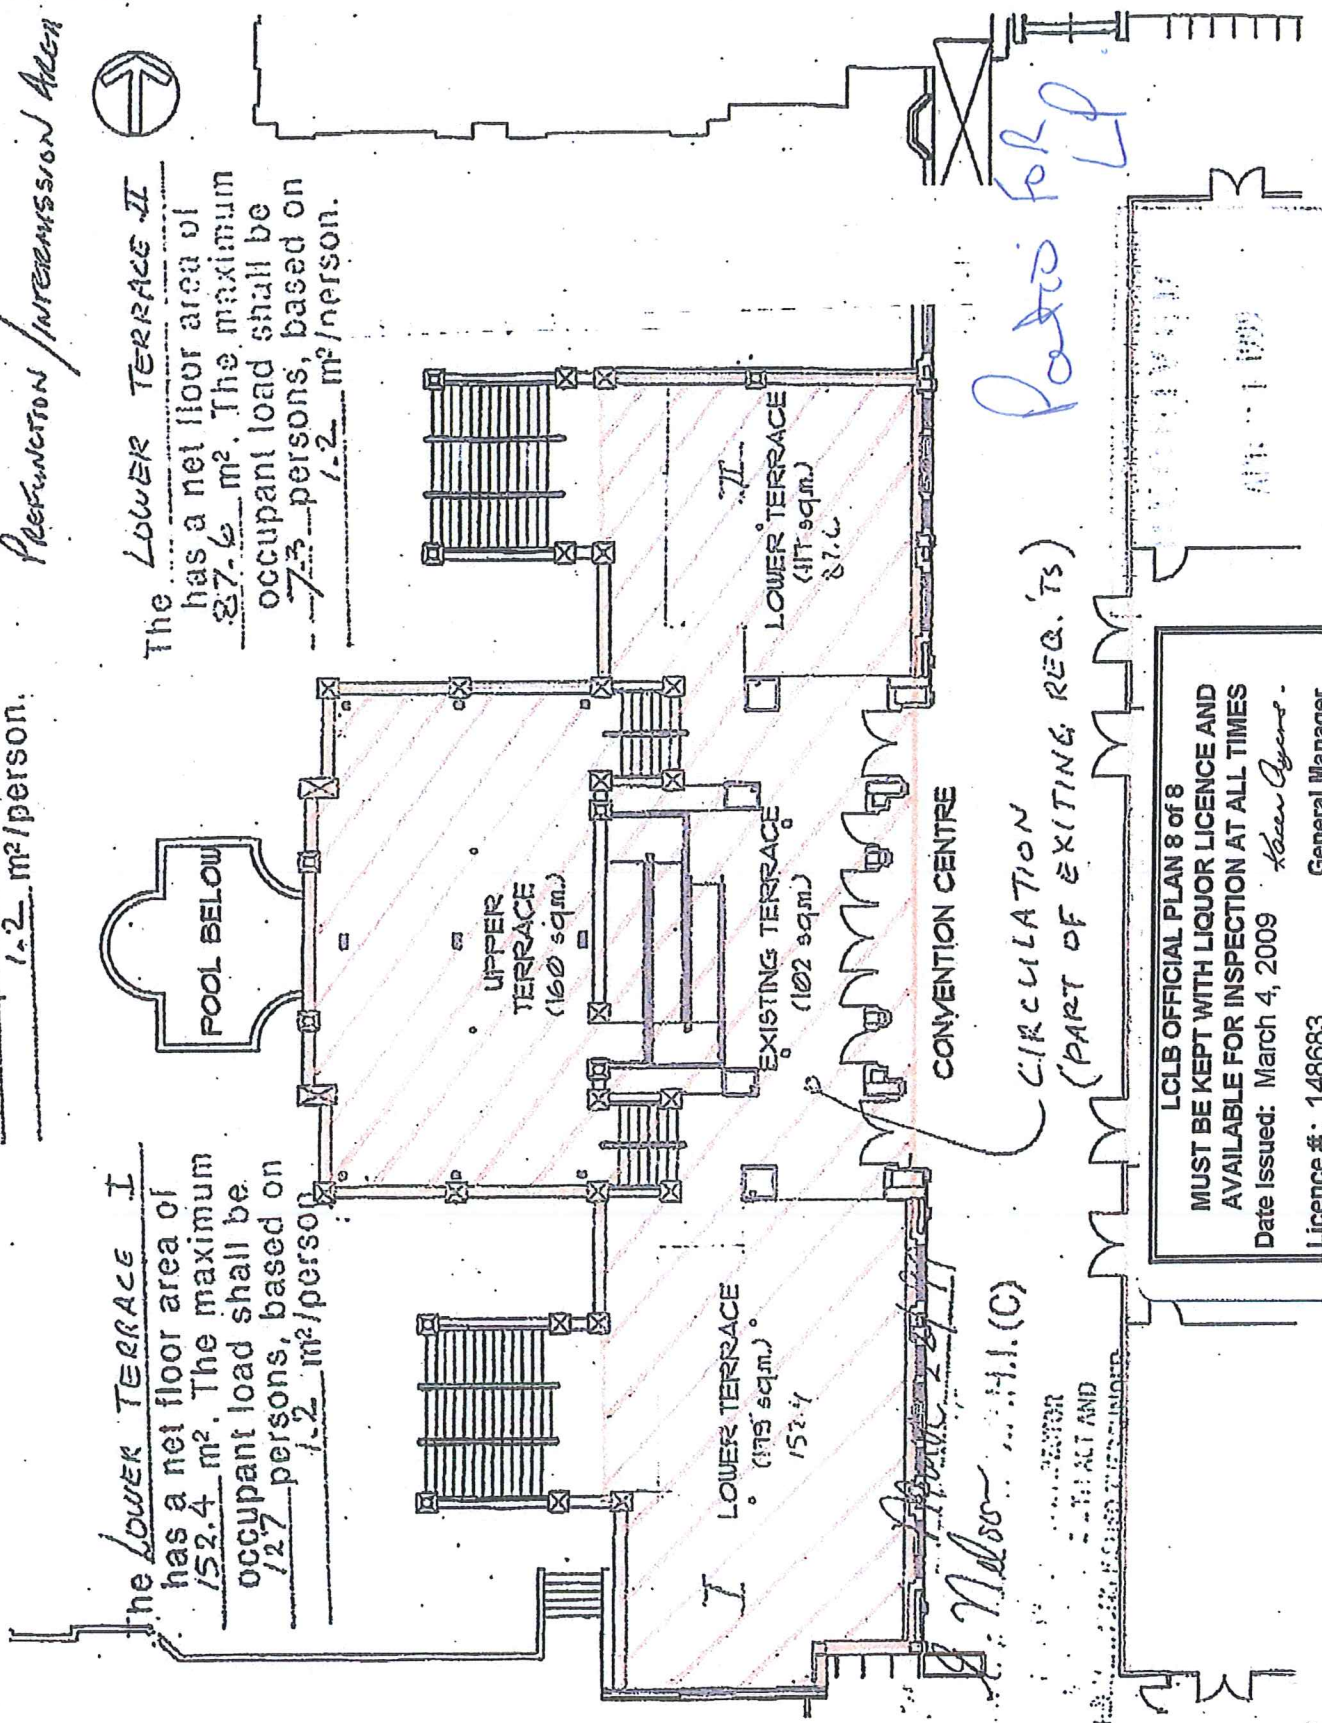 PREFUNCTION / INTERMISSION AREA
1.2 m²/person.
The LOWER TERRACE I
has a net floor area of
152.4 m². The maximum
occupant load shall be
127 persons, based on
1.2 m²/person
The LOWER TERRACE II
has a net floor area of
87.6 m². The maximum
occupant load shall be
73 persons, based on
1.2 m²/person.
POOL BELOW
UPPER
TERRACE
(160 sq.m.)
EXISTING TERRACE
(102 sq.m.)
I
LOWER TERRACE
(175 sq.m.)
152.4
II
LOWER TERRACE
(117 sq.m.)
87.6
CONVENTION CENTRE
CIRCULATION
(PART OF EXITING REQ.'TS)
Patio for
LP
Nelson
(C)
ACT AND
1 1999
LCLB OFFICIAL PLAN 8 of 8
MUST BE KEPT WITH LIQUOR LICENCE AND
AVAILABLE FOR INSPECTION AT ALL TIMES
Date Issued: March 4, 2009
General Manager
Licence #: 148683